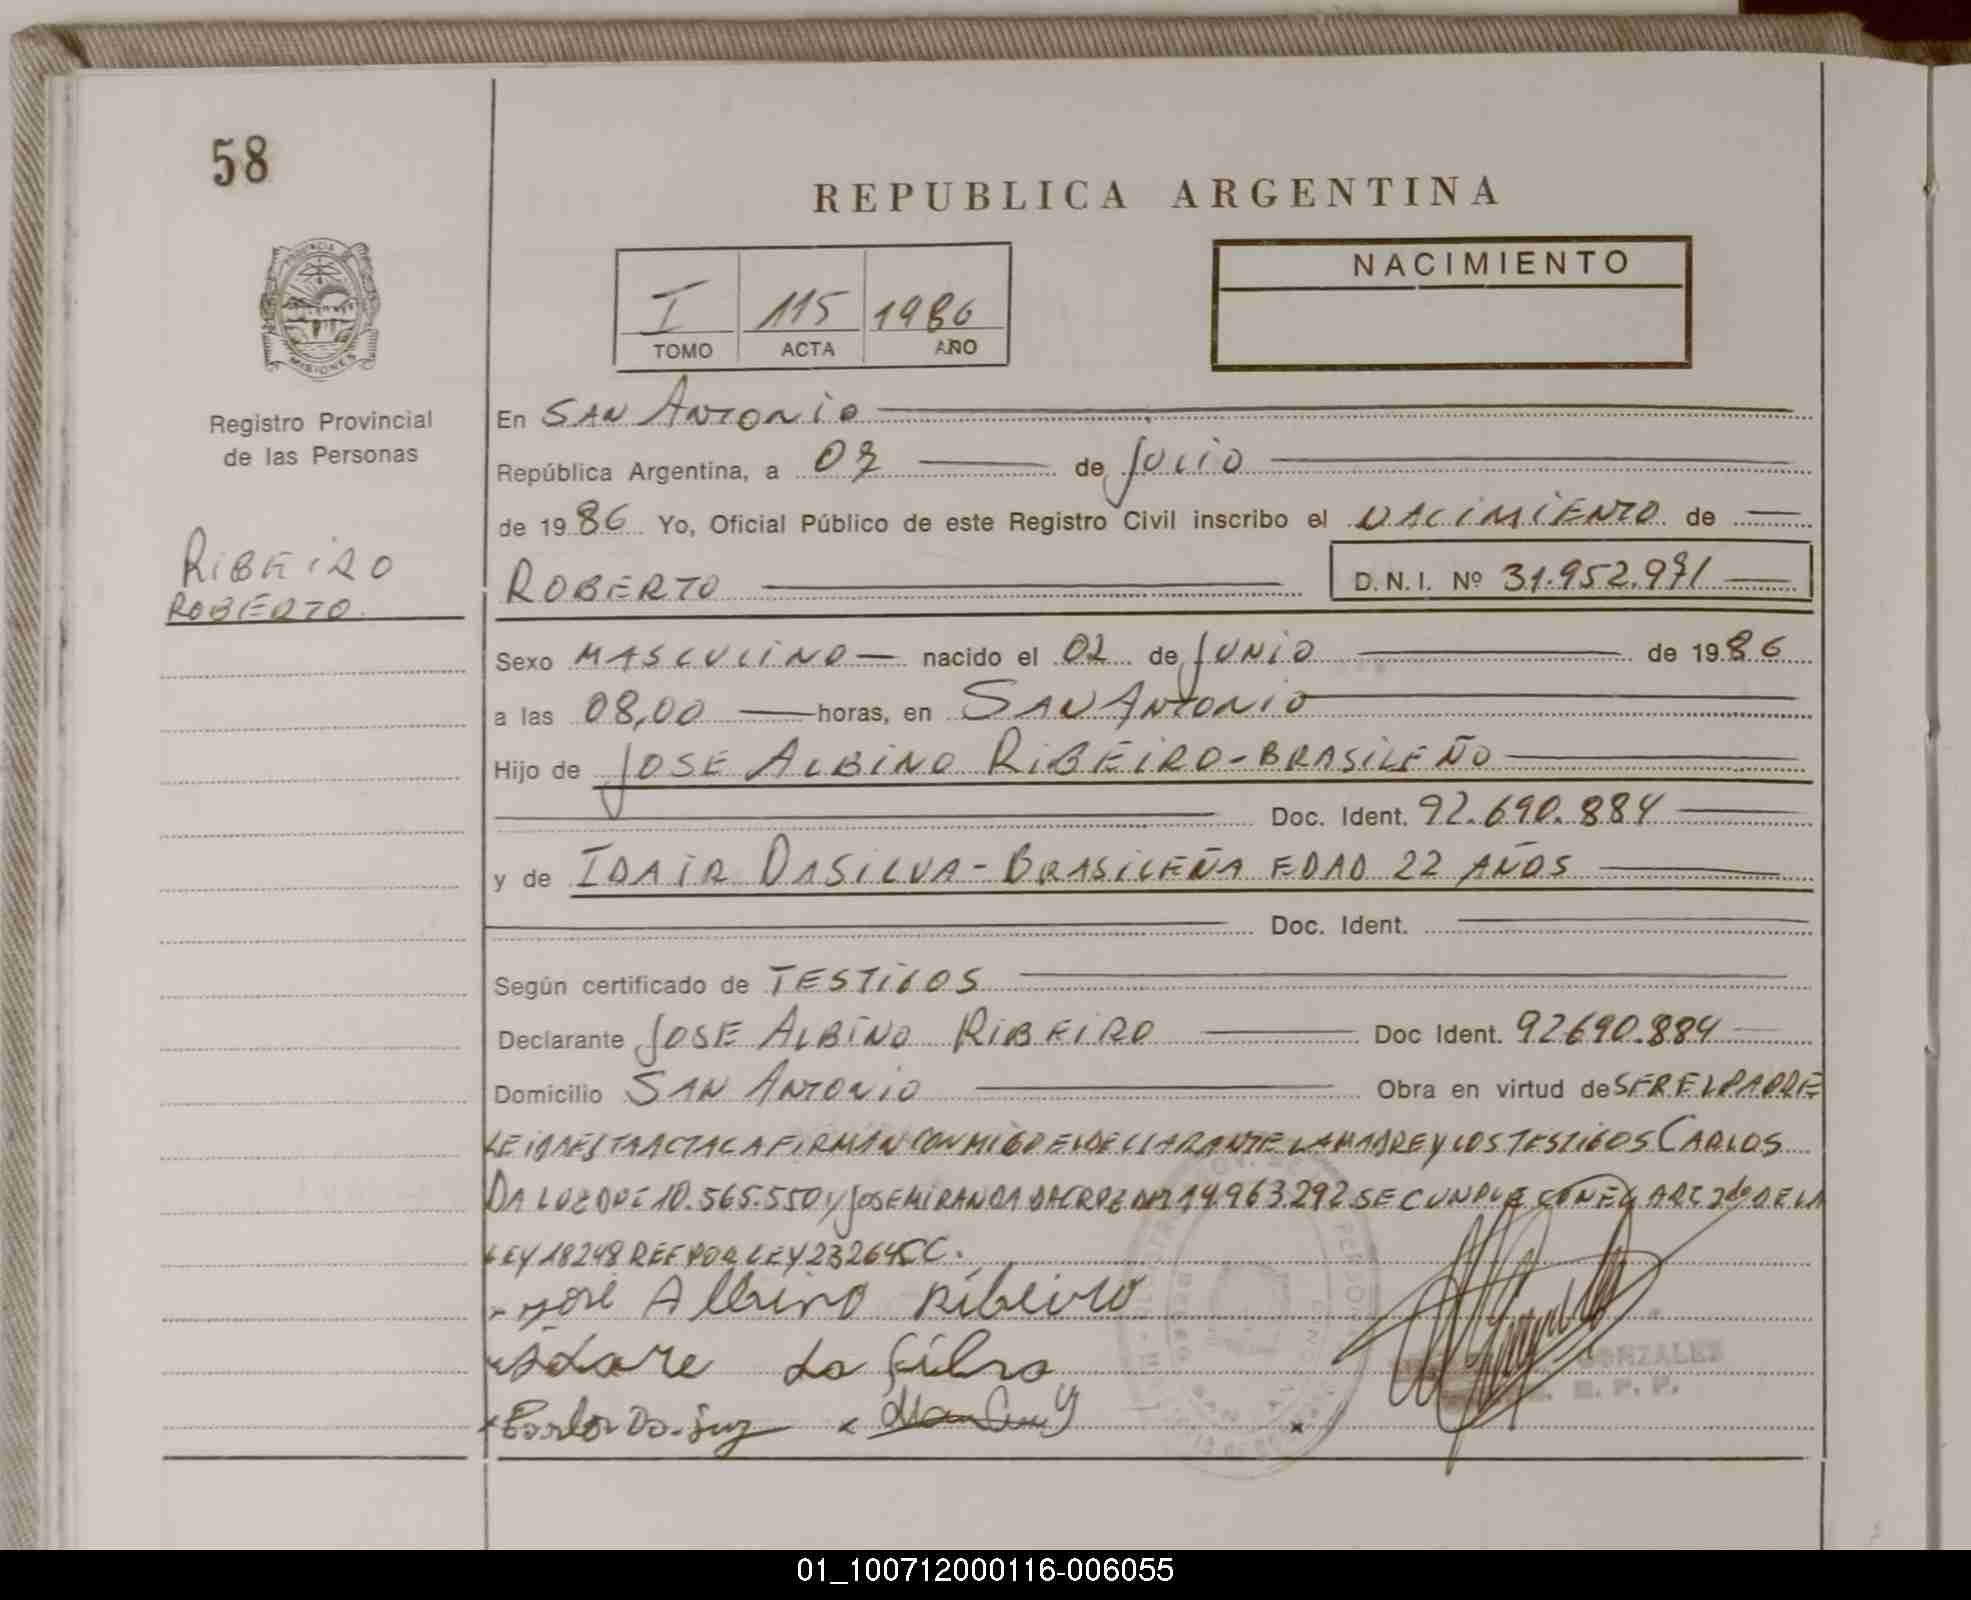 58
REPUBLICA ARGENTINA
PROVINCIA
MISIONES
NACIMIENTO
I 115 1986
TOMO ACTA AÑO
Registro Provincial
de las Personas
RIBEIRO
ROBERTO
En SAN ANTONIO
República Argentina, a 07 de JULIO
de 1986 Yo, Oficial Público de este Registro Civil inscribo el NACIMIENTO de
ROBERTO D.N.I. Nº 31.952.971
Sexo MASCULINO nacido el 02 de JUNIO de 1986
a las 08,00 horas, en SAN ANTONIO
Hijo de JOSE ALBINO RIBEIRO-BRASILEÑO
Doc. Ident. 92.690.884
y de IDAIR DASILVA-BRASILEÑA EDAD 22 AÑOS
Doc. Ident.
Según certificado de TESTIGOS
Declarante JOSE ALBINO RIBEIRO Doc Ident. 92690.884
Domicilio SAN ANTONIO Obra en virtud de SER EL PADRE
LEIDA ESTA ACTA LA FIRMAN CONMIGO EL DECLARANTE LA MADRE Y LOS TESTIGOS CARLOS
DA LUZ DNI 10.565.550 Y JOSE MIRANDA DACRUZ DNI 14.963.292 SE CUMPLE CON EL ART 2do DE LA
LEY 18248 REF POR LEY 23264 CC.
José Albino Ribeiro
da Silva
Carlos Da Luz
GONZALEZ
01_100712000116-006055